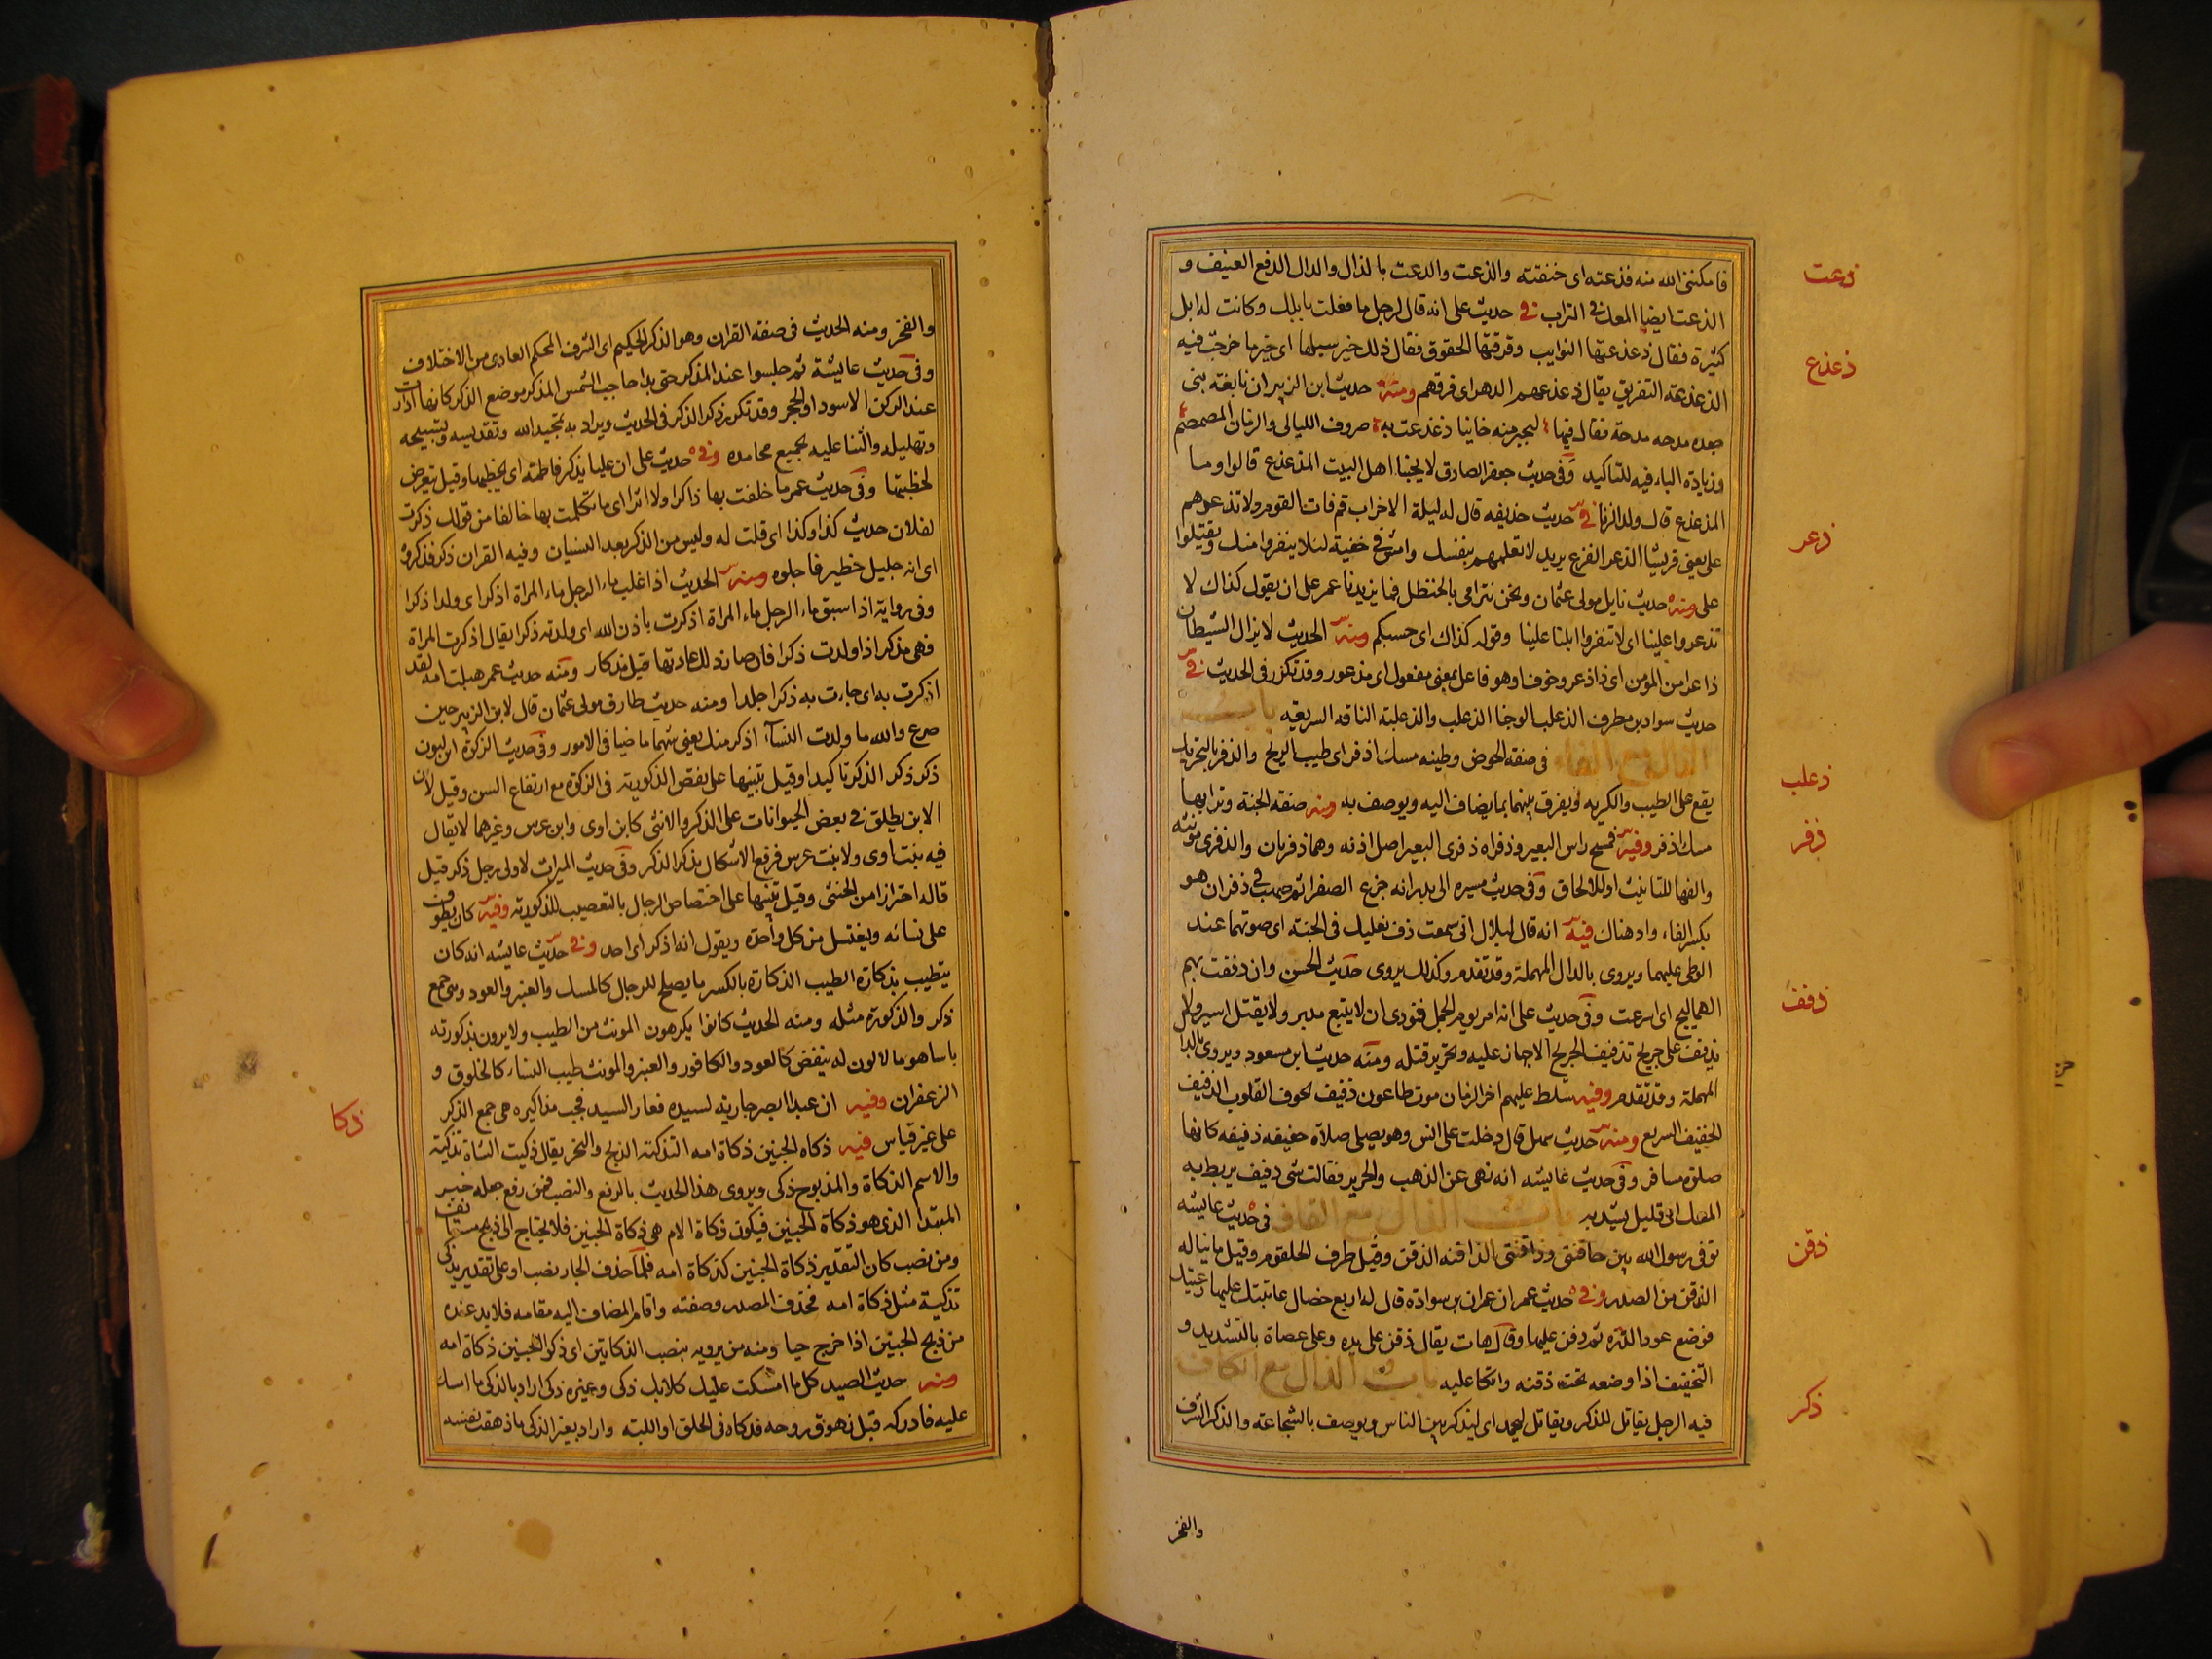 فامكننى الله منه فذعته اى خنقته والذعت والدعت بالذال والدال الدفع العنيف و
الذعت ايضا المعك فى التراب فى حديث على انه قال لرجل ما فعلت بابلك وكانت له ابل
كثيرة فقال ذعذعتها النوايب وفرقتها الحقوق فقال ذلك خير سبلها اى خير ما خرجت فيه
الذعذعة التفريق يقال ذعذعهم الدهر اى فرقهم ومنه حديث ابن الزبير ان نابغة بنى
جعده مدحه مدحة فقال فيها لتجبر منه جانبا ذعذعت به صروف الليالى والزمان المصمصم
وزيادة الباء فيه للتاكيد وفى حديث جعفر الصادق لا يحبنا اهل البيت المذعذع قالوا وما
المذعذع قال ولد الزنا فى حديث حذيفه قال له ليلة الاحزاب قم فات القوم ولا تذعرهم
على يعنى قريشا الذعر الفزع يريد لا تعلمهم بنفسك وامش فى خفية لئلا ينفروا منك ويقبلوا
على ومنه حديث نايل مولى عثمان ونحن نترامى بالحنظل فما يزيدنا عمر على ان يقول كذاك لا
تذعروا علينا اى لا تنفروا ابلنا علينا وقوله كذاك اى حسبكم ومنه الحديث لا يزال الشيطان
ذاعرا من المؤمن اى ذا ذعر وخوف او هو فاعل بمعنى مفعول اى مذعور وقد تكرر فى الحديث فى
حديث سواد بن مطرف الذعلب الوجنا الذعلب والذعلبة الناقه السريعه باب
الذال مع الفاء فى صفة الحوض وطينه مسك اذفر اى طيب الريح والذفر بالتحريك
يقع على الطيب والكريه ويفرق بينهما بما يضاف اليه ويوصف به ومنه صفة الجنة وترابها
مسك اذفر وفيه فمسح راس البعير وذفراه ذفرى البعير اصل اذنه وهما ذفريان والذفرى مونثه
والفها للتانيث او للالحاق وفى حديث مسيره الى بدر انه جزع الصفرا ثم صب فى ذفران هو
بكسر الفاء واد هناك فيه انه قال لبلال انى سمعت ذف نعليك فى الجنة اى صوتهما عند
الوطى عليهما ويروى بالدال المهملة وقد تقدم وكذلك يروى حديث الحسن وان ذففت بهم
الهماليج اى اسرعت وفى حديث على انه امر يوم الجمل فنودى ان لا يتبع مدبر ولا يقتل اسير ولا
يذفف على جريح تذفيف الجريح الاجهاز عليه وتحرير قتله ومنه حديث ابن مسعود ويروى بالدال
المهملة وقد تقدم وفيه سلط عليهم اخر الزمان موت طاعون ذفيف يحوف القلوب الذفيف
الخفيف السريع ومنه حديث سهل قال دخلت على انس وهو يصلى صلاة خفيفه ذفيفه كانها
صلوة مسافر وفى حديث عايشه انه نهى عن الذهب والحرير فقالت شى ذفيف يربط به
المسك اى قليل يشد به باب الذال مع القاف فى حديث عايشه
توفى رسول الله بين حاقنتى وذاقنتى الذاقنه الذقن وقيل طرف الحلقوم وقيل ما يناله
الذقن من الصدر وفى حديث عمر ان عمران بن سوادة قال له اربع خصال عاتبتك عليها رعيتك
فوضع عود الدره ثم ذقن عليها وقال هات يقال ذقن على يده وعلى عصاة بالتشديد و
التخفيف اذا وضعه تحت ذقنه واتكا عليه باب الذال مع الكاف
فيه الرجل يقاتل للذكر ويقاتل ليحمد اى ليذكر بين الناس ويوصف بالشجاعة والذكر الشرف
ذعت
ذعذع
ذعر
ذعلب
ذفر
ذفف
ذقن
ذكر
والفخر
والفخر ومنه الحديث فى صفة القران وهو الذكر الحكيم اى الشرف المحكم العارى من الاختلاف
وفى حديث عايشة ثم جلسوا عند المذكر حتى بدا حاجب الشمس المذكر موضع الذكر كانها ارادت
عند الركن الاسود او الحجر وقد تكرر ذكر الذكر فى الحديث ويراد به تمجيد الله وتقديسه وتسبيحه
وتهليله والثنا عليه بجميع محامده وفى حديث على ان عليا يذكر فاطمة اى يخطبها وقيل يتعرض
لخطبتها وفى حديث عمر ما حلفت بها ذاكرا ولا اثرا اى ما تكلمت بها حالفا من قولك ذكرت
لفلان حديث كذا وكذا اى قلت له وليس من الذكر بعد النسيان وفيه القران ذكر فذكروه
اى انه جليل خطير فاجلوه ومنه الحديث اذا غلب ماء الرجل ماء المراة اذكرا اى ولدا ذكرا
وفى رواية اذا سبق ماء الرجل ماء المراة اذكرت باذن الله اى ولدته ذكرا يقال اذكرت المراة
فهى مذكر اذا ولدت ذكرا فان صار ذلك عادتها قيل مذكار ومنه حديث عمر هبلت امه لقد
اذكرت به اى جاءت به ذكرا جلدا ومنه حديث طارق مولى عثمان قال لابن الزبير حين
صرع والله ما ولدت النسآء اذكر منك يعنى شهما ماضيا فى الامور وفى حديث الزكوة ابن لبون
ذكر ذكر الذكر تاكيدا وقيل تنبيها على نقص الذكورية فى الزكوة مع ارتفاع السن وقيل لان
الابن يطلق فى بعض الحيوانات على الذكر والانثى كابن اوى وابن عرس وغيرهما لا يقال
فيه بنت اوى ولا بنت عرس فرفع الاشكال بذكر الذكر وفى حديث الميراث لاولى رجل ذكر قيل
قاله احترازا من الخنثى وقيل تنبيها على اختصاص الرجال بالتعصيب للذكورية وفيه كان يطوف
على نسائه ويغتسل من كل واحدة ويقول انه اذكر اى احد وفى حديث عايشه انه كان
يتطيب بذكارة الطيب الذكارة بالكسر ما يصلح للرجال كالمسك والعنبر والعود وهى جمع
ذكر والذكورة مثله ومنه الحديث كانوا يكرهون المونث من الطيب ولا يرون بذكورته
باسا هو ما لا لون له ينفض كالعود والكافور والعنبر والمونث طيب النساء كالخلوق و
الزعفران وفيه ان عبدا ابصر جارية لسيده فغار السيد فجب مذاكيره هى جمع الذكر
على غير قياس فيه ذكاه الجنين ذكاة امه التذكية الذبح والنحر يقال ذكيت الشاة تذكية
والاسم الذكاة والمذبوح ذكى ويروى هذا الحديث بالرفع والنصب فمن رفع جعله خبر
المبتدا الذى هو ذكاة الجنين فيكون ذكاة الام هى ذكاة الجنين فلا يحتاج الى ذبح مستانف
ومن نصب كان التقدير ذكاة الجنين كذكاة امه فلما حذف الجار نصب او على تقدير يذكى
تذكية مثل ذكاة امه فحذف المصدر وصفته واقام المضاف اليه مقامه فلا بد عنده
من ذبح الجنين اذا خرج حيا ومنه من يرويه بنصب الذكاتين اى ذكوا الجنين ذكاة امه
ومنه حديث الصيد كل ما امسكت عليك كلابك ذكى وغيره ذكى اراد بالذكى ما امسك
عليه فادركه قبل زهوق روحه فذكاه فى الحلق او اللبة واراد بغير الذكى ما زهقت نفسه
ذكا